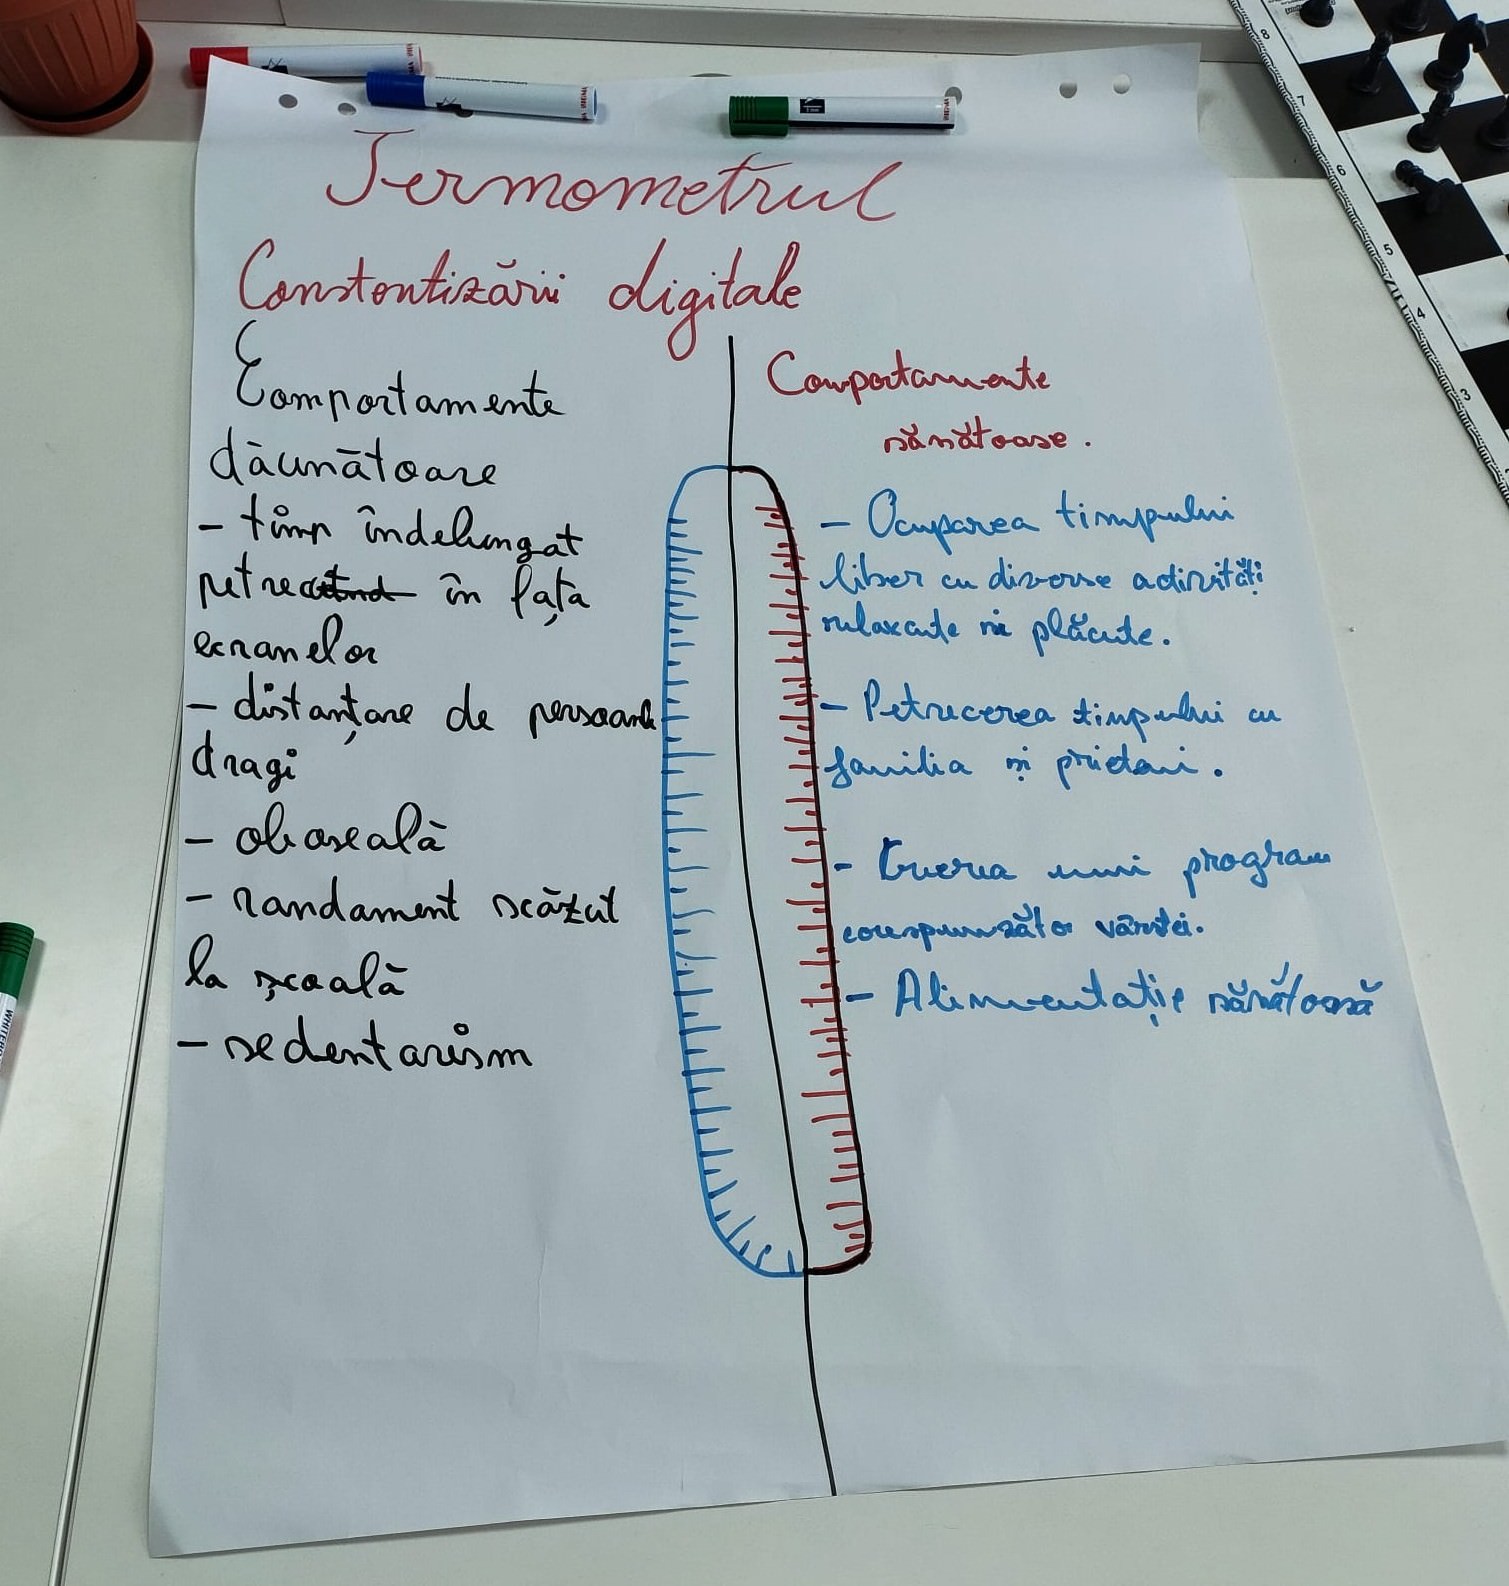 Termometrul
Constentizării digitale
Comportamente
dăunătoare
- timp îndelungat
petrecut în fața
ecranelor
- distanțare de persoanele
dragi
- oboseală
- randament scăzut
la școală
- sedentarism
Comportamente
sănătoase.
- Ocuparea timpului
liber cu diverse activități
relaxante și plăcute.
- Petrecerea timpului cu
familia și prieteni.
- Crearea unui program
corespunzător vârstei.
- Alimentație sănătoasă
8
7
6
5
4
3